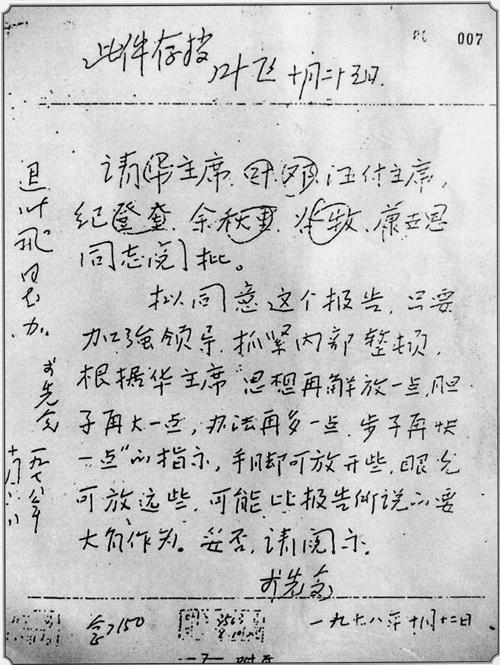 007
此件存档
叶飞 十月二十五日
请华主席、叶、邓、汪付主席、
纪登奎、余秋里、谷牧、康世恩
同志阅批。
拟同意这个报告,只要
加强领导,抓紧内部整顿,
根据华主席“思想再解放一点,胆
子再大一点,办法再多一点,步子再快
一点”的指示,手脚可放开些,眼光
可放远些,可能比报告所说的要
大有作为。妥否,请阅示。
李先念
一九七八年十月十二日
退叶飞同志办。
李先念
一九七八年